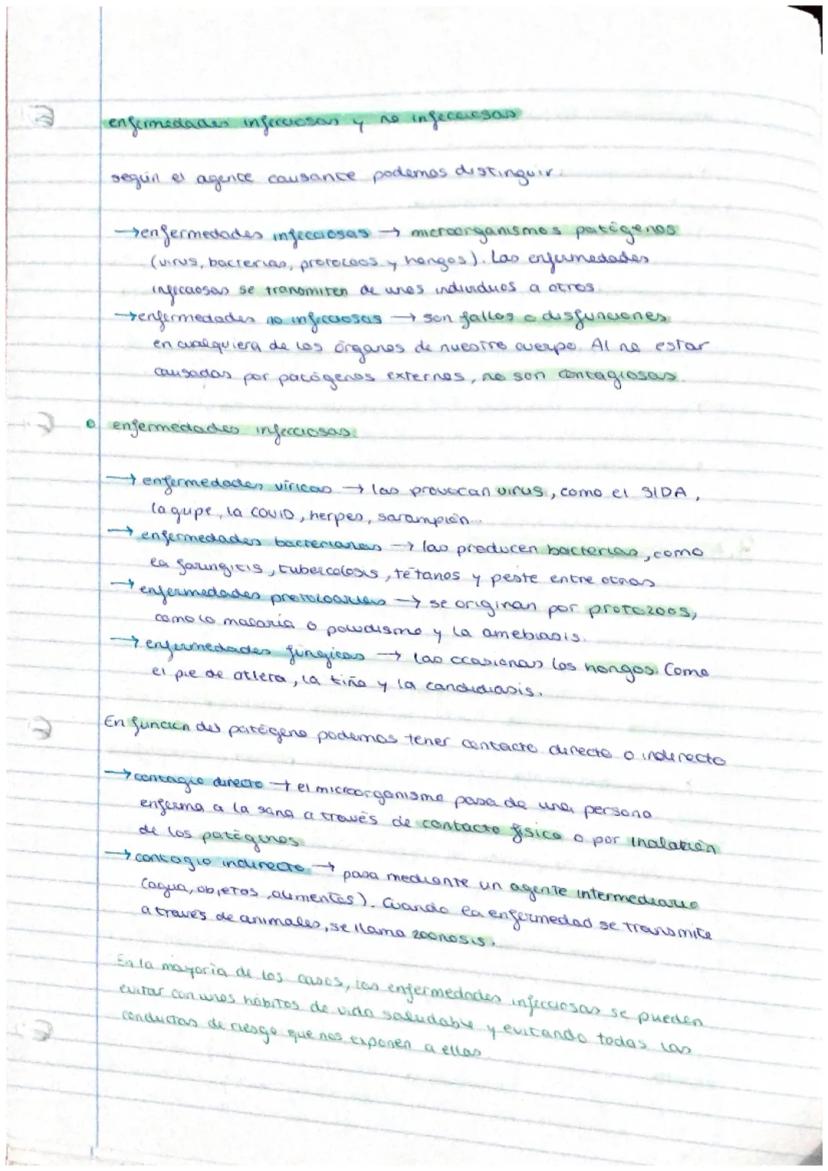 enfermedades infecciosas y no infecciosas
según el agente causante podemos distinguir:
→enfermedades infecciosas → microorganismos patógenos
(virus, bacterias, protozoos y hongos). Las enfermedades
infecciosas se transmiten de unos individuos a otros
→enfermedades no infecciosas → son fallos o disfunciones
en cualquiera de los órganos de nuestro cuerpo. Al no estar
causadas por patógenos externos, no son contagiosas.
enfermedades infecciosas:
→ enfermedades víricas → las provocan virus, como el SIDA,
la gripe, la COVID, herpes, sarampión...
→ enfermedades bacterianas → las producen bacterias, como
la faringitis, tubercolosis, tétanos y peste entre otras
→ enfermedades protozoarias → se originan por protozoos,
como la malaria o paludismo y la amebiasis.
→ enfermedades fúngicas → las ocasionan los hongos. Como
el pie de atleta, la tiña y la candidiasis.
En función del patógeno podemos tener contacto directo o indirecto
→contagio directo → el microorganismo pasa de una persona
enferma a la sana a través de contacto físico o por inalación
de los patógenos
→ contagio indirecto → pasa mediante un agente intermediario
(agua, objetos, alimentos). Cuando la enfermedad se transmite
a través de animales, se llama zoonosis.
En la mayoría de los casos, las enfermedades infecciosas se pueden
evitar con unos hábitos de vida saludable y evitando todas las
conductas de riesgo que nos exponen a ellas